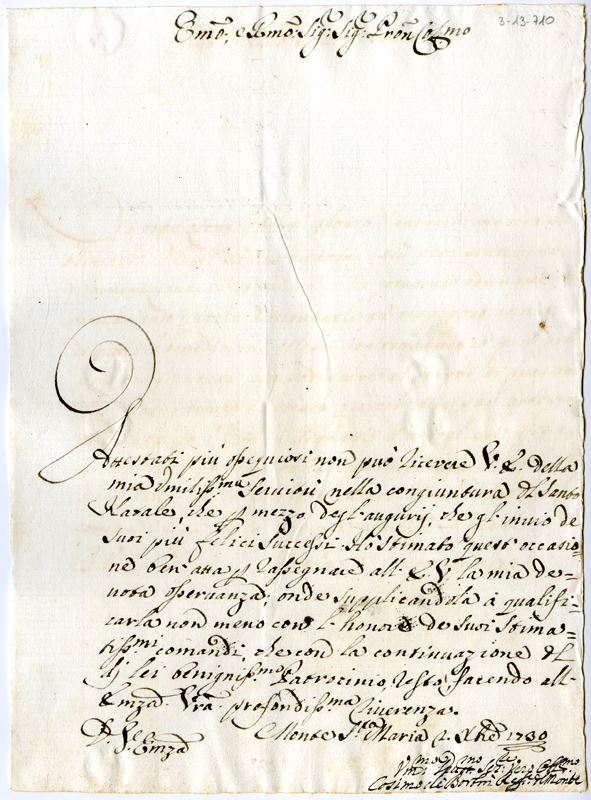 3-13-710
Emo:, e Rmo: Sig: Sig: Pron Colmo
Attestati più ossequiosi non può ricevere V: E. della
mia umiliss:ma servitù nella congiuntura del Santo
Natale, che p mezzo degl'augurij, che gl'invio de
suoi più felici successi. Hò stimato quest'occasio=
ne ben'atta p rassegnare all'E. V. la mia de=
vota osservanza; onde supplicandola à qualifi:
carla non meno con l'honore de suoi stima=
tiss:mi comandi, che con la continuazione del
di lei beniguiss:mo Patrocinio, resto, facendo all'
Emza Vra profondiss:ma riverenza.
D. V. Emza Monte Sta Maria